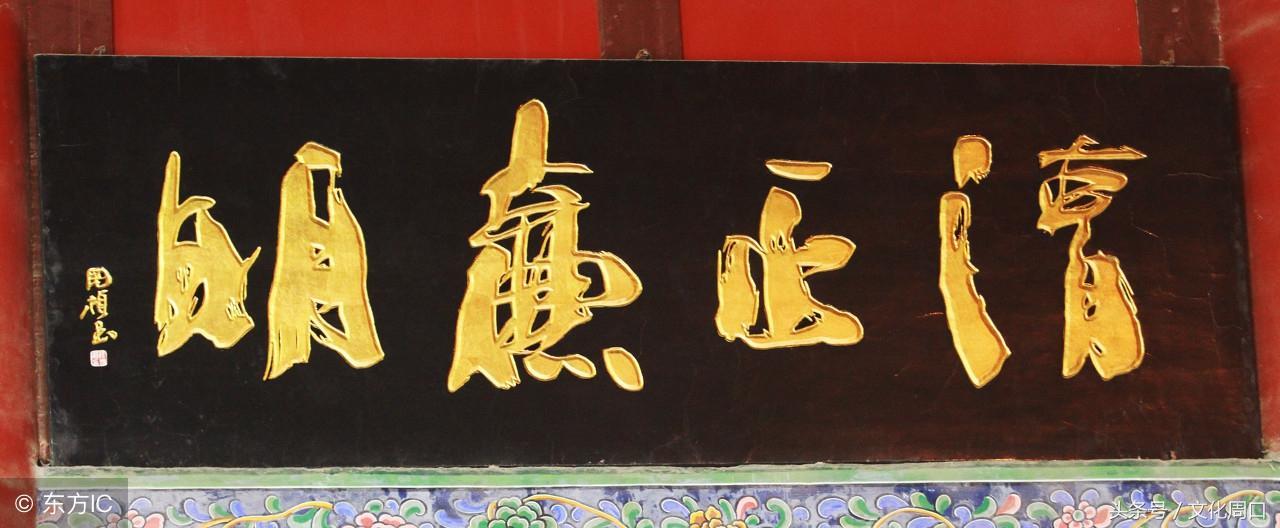 清正廉明
周楨书
© 东方IC
头条号 / 文化周口